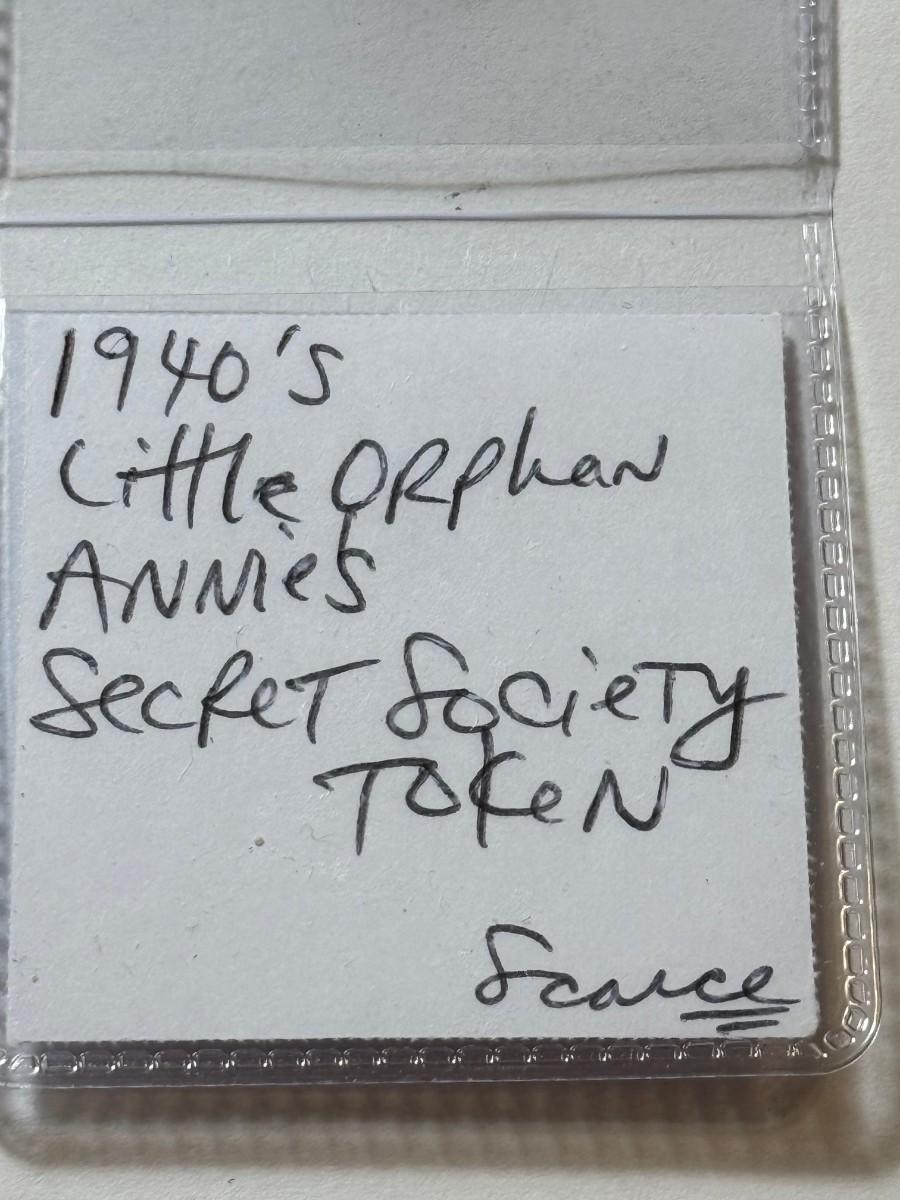 1940's
Little ORphan
ANNie's
SecReT SocieTy
TOKeN
Scarce